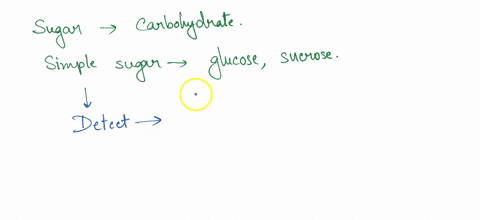 Sugar → Carbohydrate.
Simple sugar → glucose, sucrose.
↓
Detect →